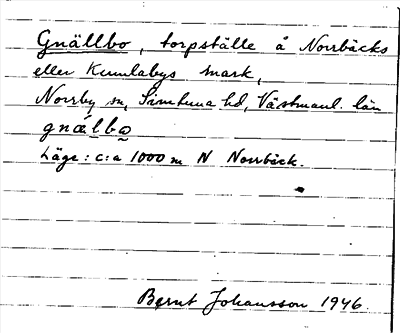 Gnällbo, torpställe å Norrbäcks
eller Kumlabys mark,
Norrby sn, Simtuna hd, Västmanl. län
gnǽlbo̲
Läge: c:a 1000 m N Norrbäck.
Bernt Johansson 1946.